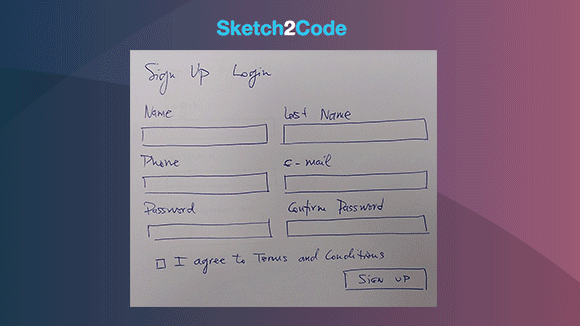 Sketch2Code
Sign Up Login
Name Last Name
Phone e-mail
Password Confirm Password
I agree to Terms and Conditions
Sign up